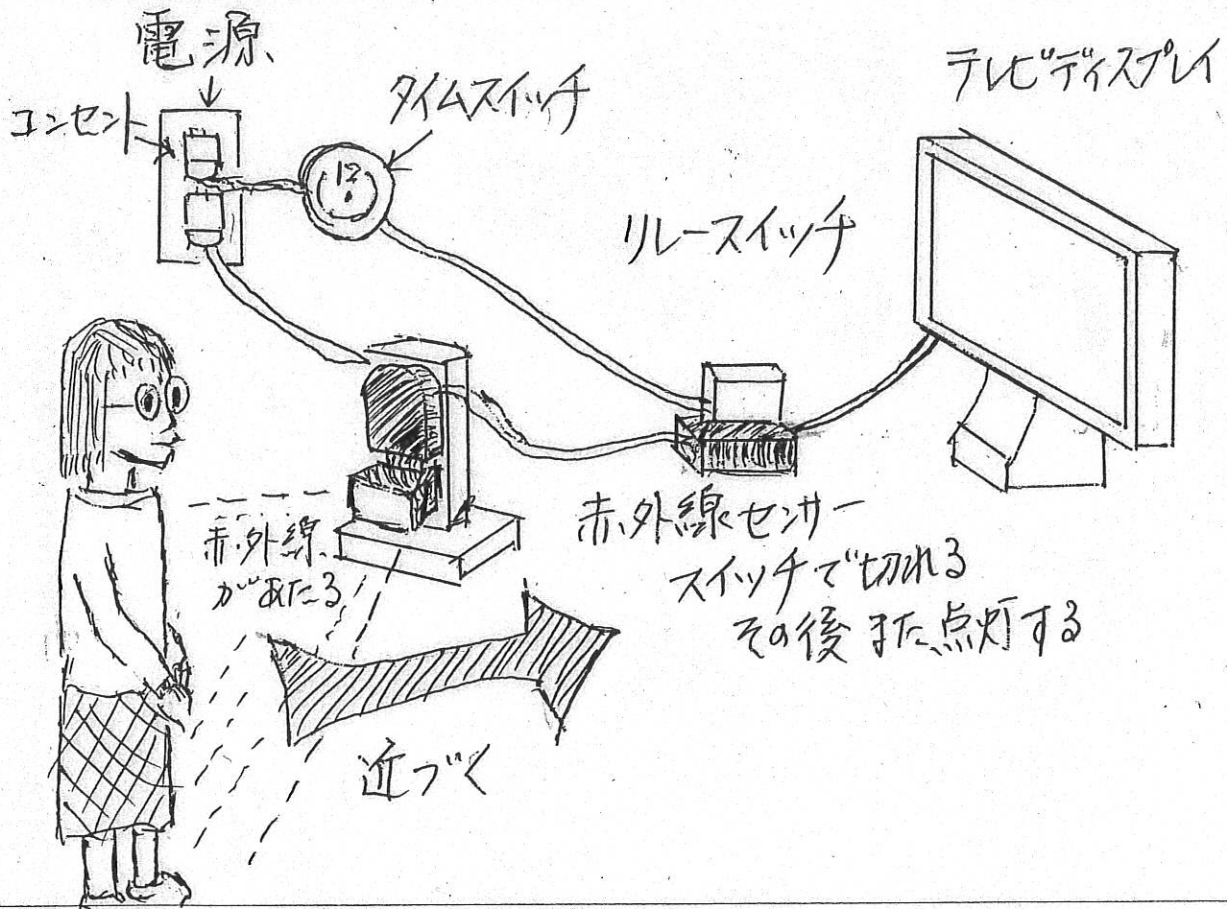 電源
コンセント
タイムスイッチ
12
テレビディスプレイ
リレースイッチ
赤外線
があたる
赤外線センサー
スイッチで切れる
その後また点灯する
近づく